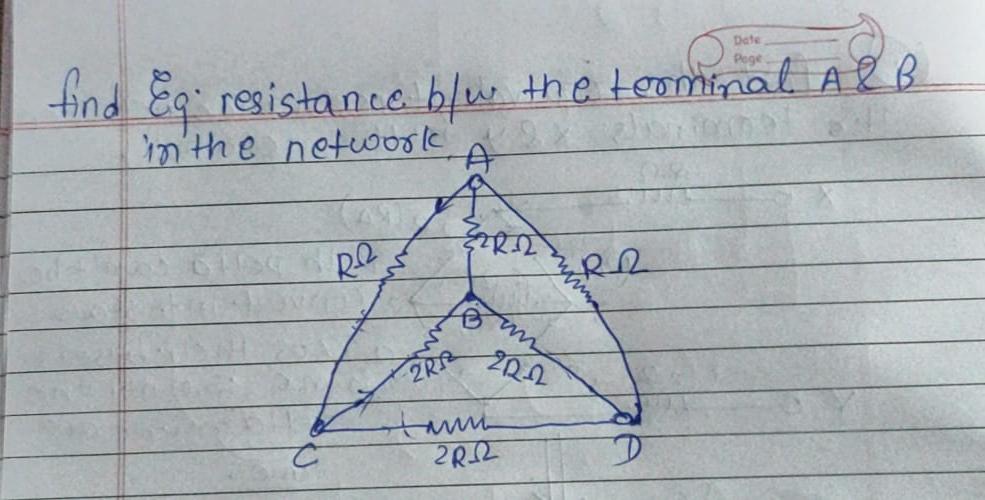 Date
Page
find Eq. resistance b/w the teorminal A & B
in the network
A
RΩ
2RΩ
RΩ
B
2RΩ
2RΩ
2RΩ
C
D